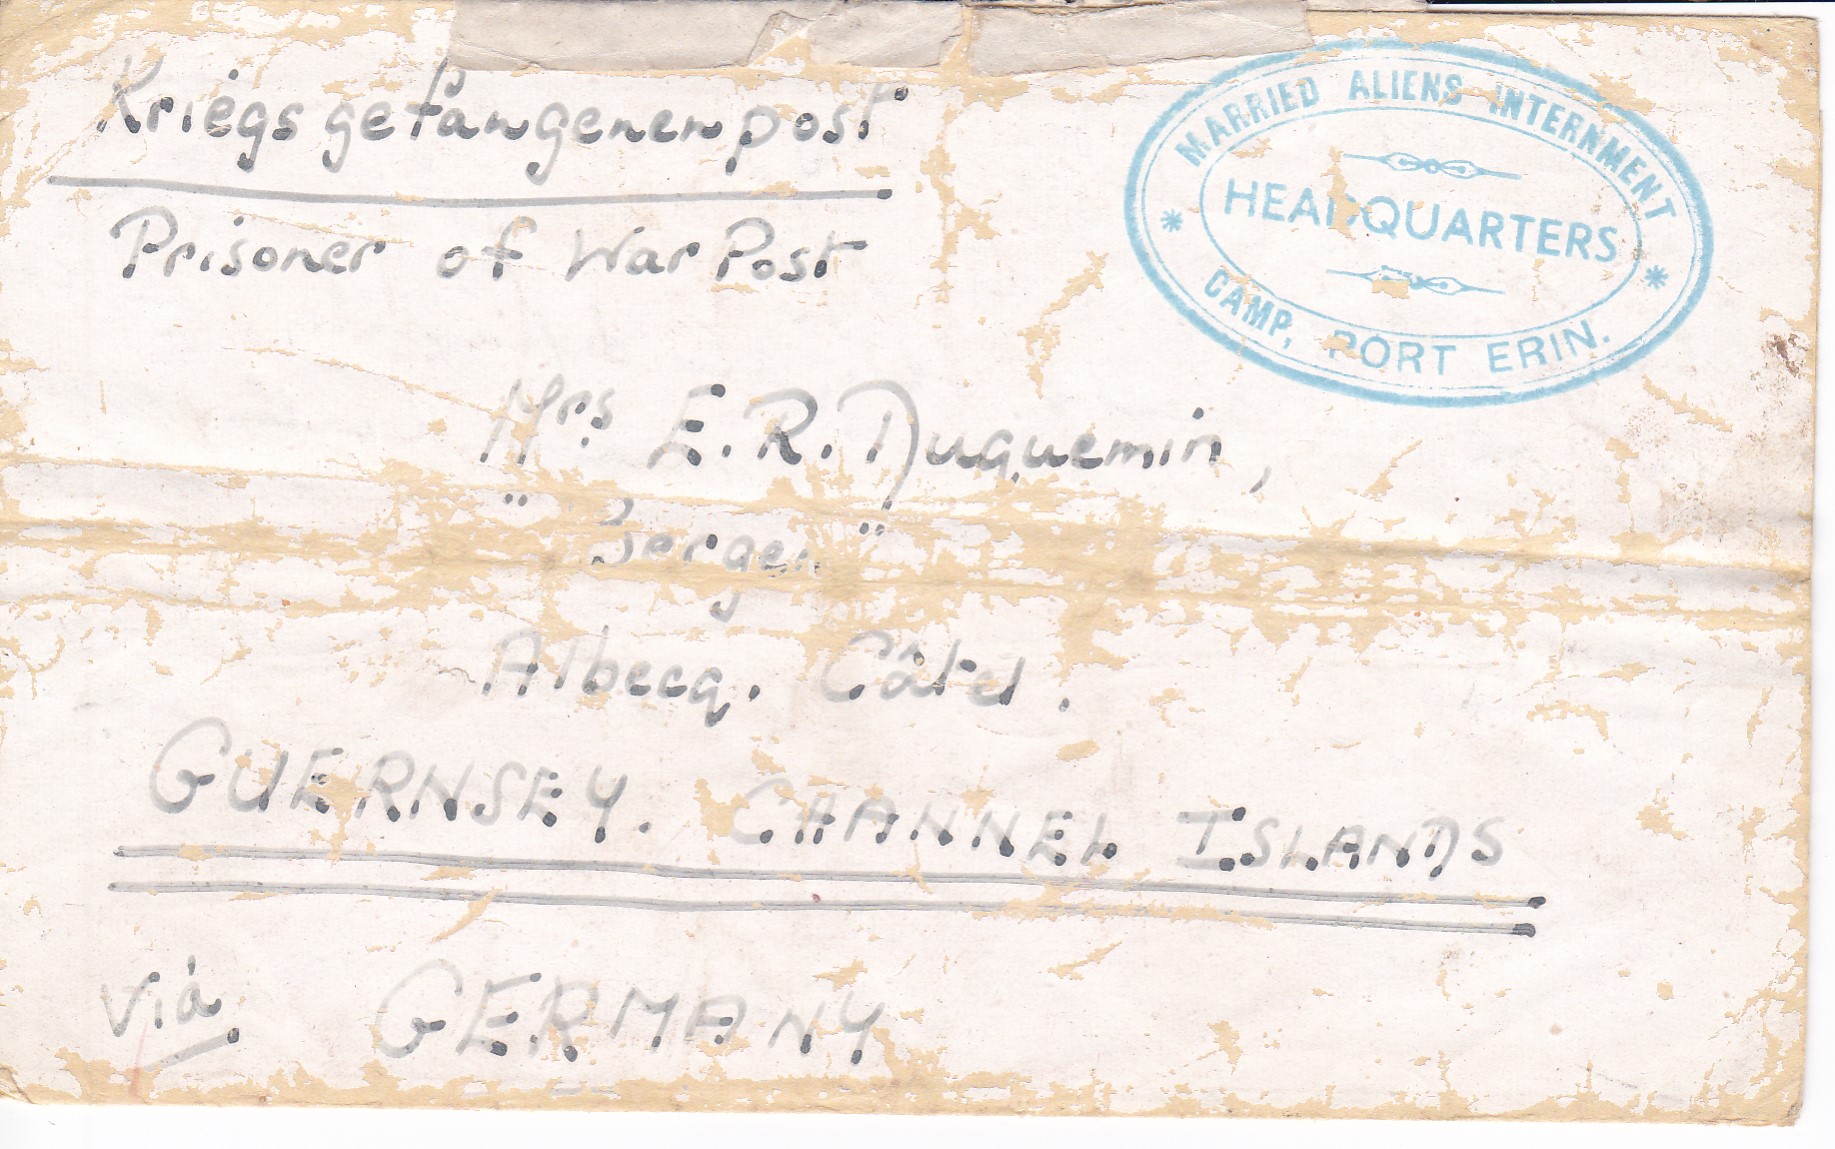 Kriegsgefangenenpost
Prisoner of War Post
MARRIED ALIENS INTERNMENT
HEADQUARTERS
CAMP, PORT ERIN.
Mrs E. R. Duquemin,
Albecq. Câtel.
GUERNSEY. CHANNEL ISLANDS
Viá GERMANY